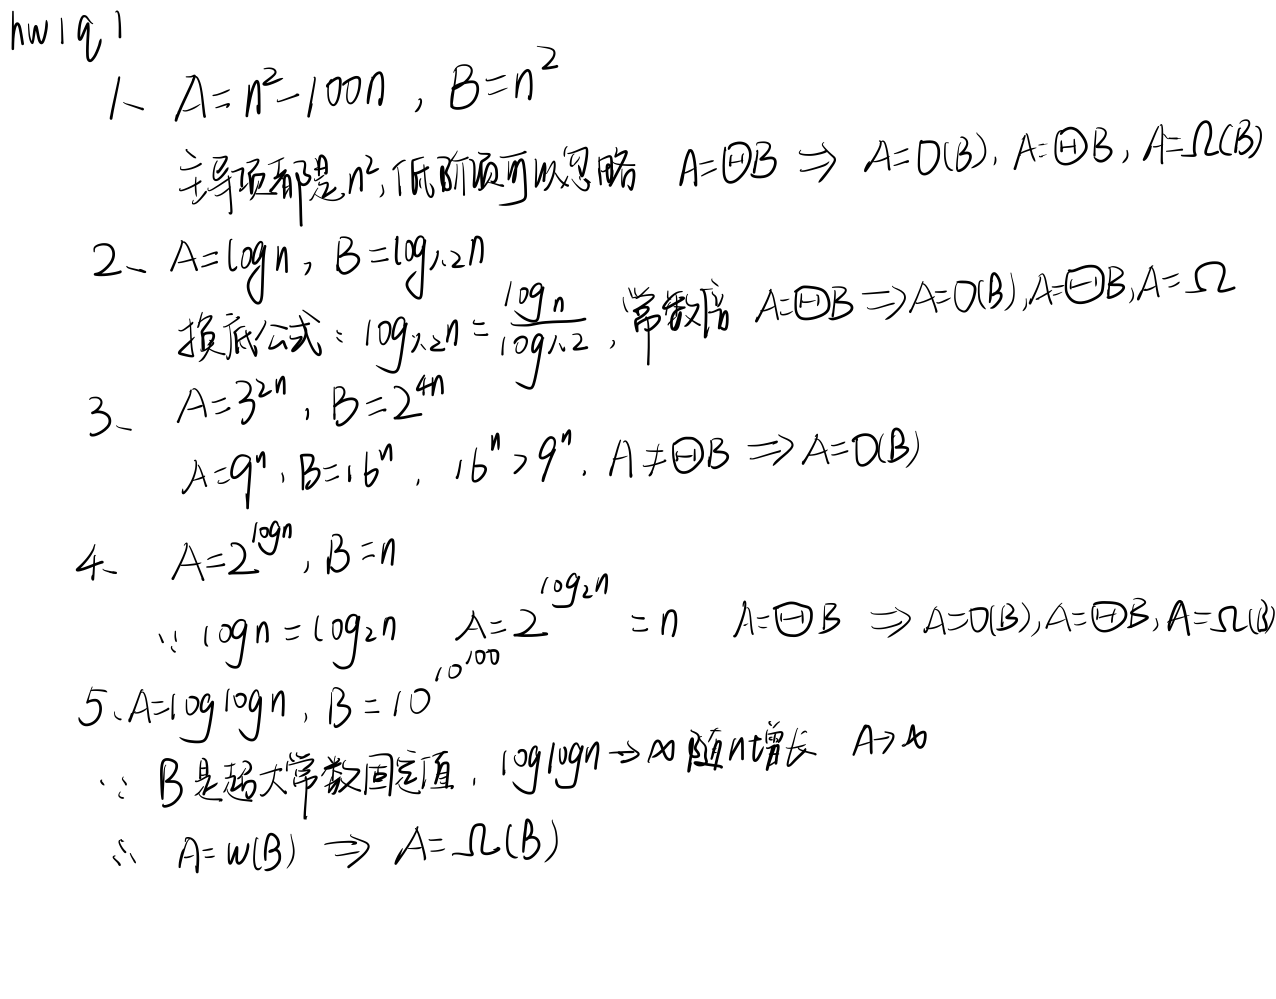 hw1q1
1、 A=n²-100n , B=n²
主导项都是n²,低阶项可以忽略 A=ΘB ⇒ A=O(B), A=ΘB, A=Ω(B)
2、 A=logn, B=log₁.₂n
换底公式: log₁.₂n = logn/log1.2 , 常数倍 A=ΘB ⇒ A=O(B), A=ΘB, A=Ω
3、 A=3²ⁿ, B=2⁴ⁿ
A=9ⁿ, B=16ⁿ, 16ⁿ>9ⁿ. A≠ΘB ⇒ A=O(B)
4、 A=2^logn, B=n
∵ logn=log₂n A=2^log₂n = n A=ΘB ⇒ A=O(B), A=ΘB, A=Ω(B)
5、A=loglogn, B=10^10^100
∵ B是超大常数固定值, loglogn→∞随n增长 A→∞
∴ A=w(B) ⇒ A=Ω(B)